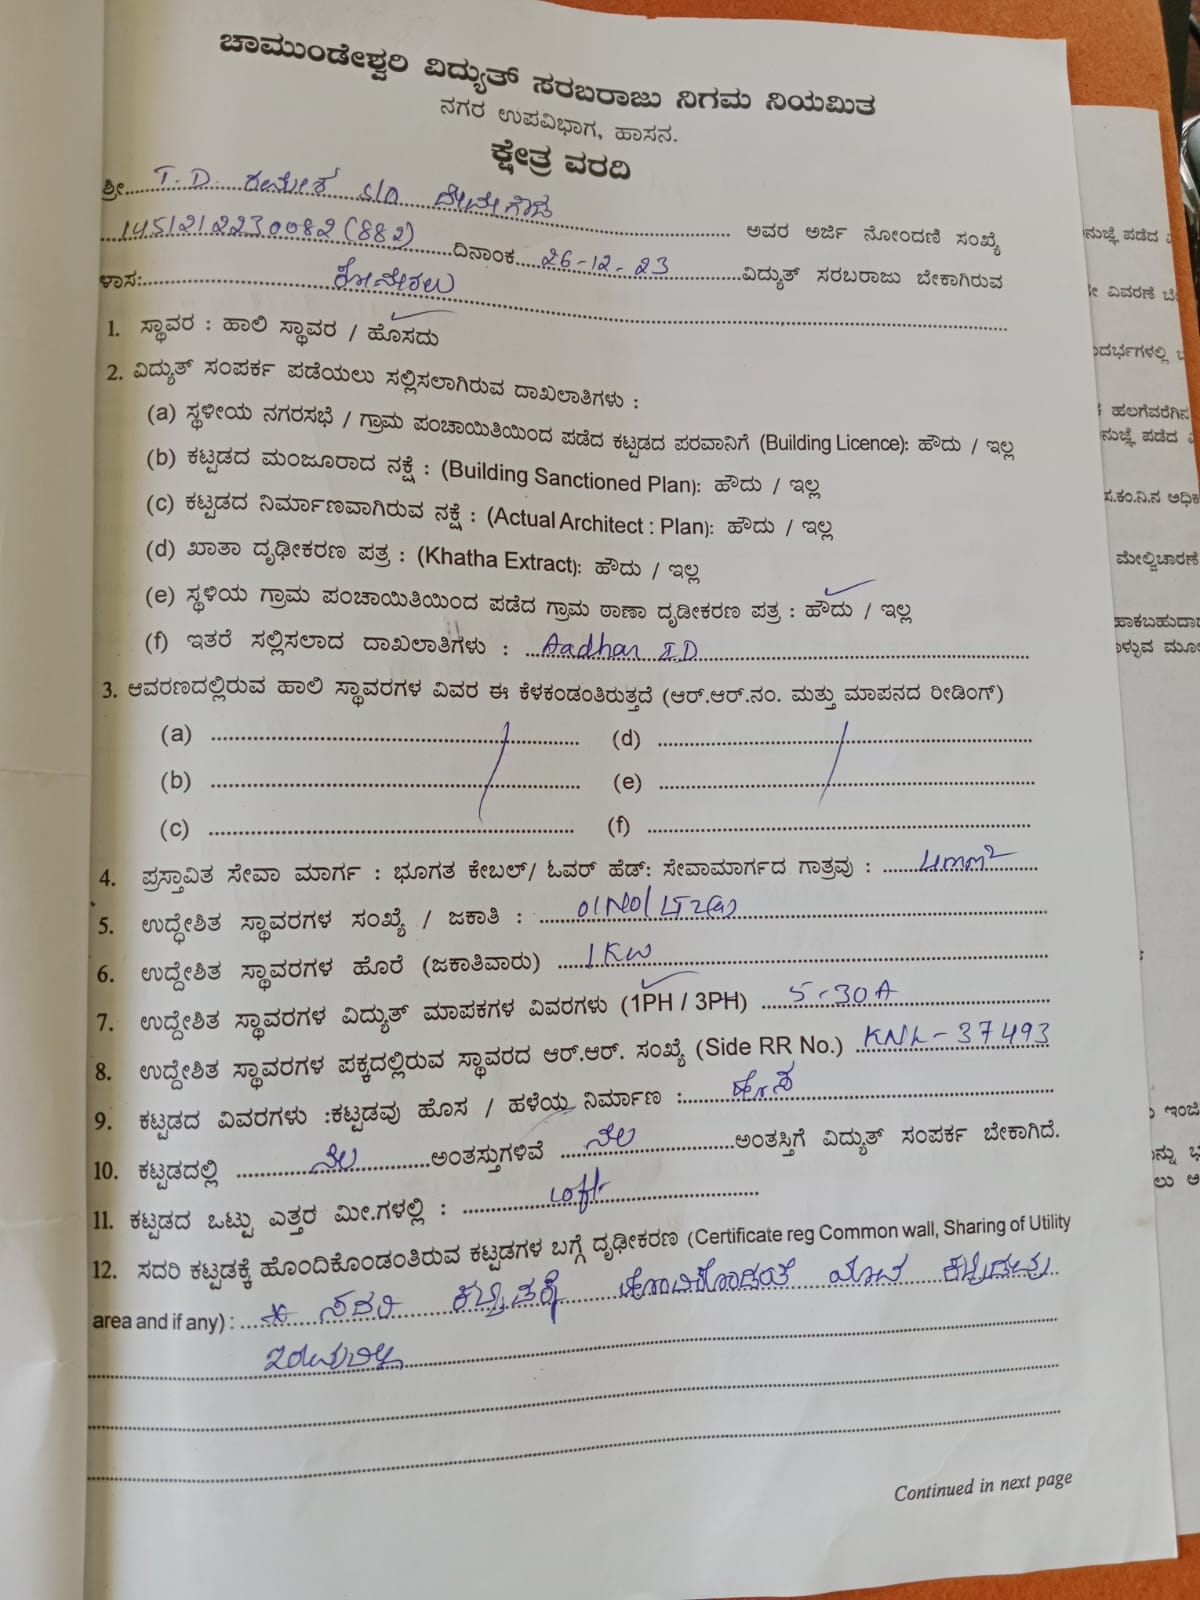 ಚಾಮುಂಡೇಶ್ವರಿ ವಿದ್ಯುತ್ ಸರಬರಾಜು ನಿಗಮ ನಿಯಮಿತ
ನಗರ ಉಪವಿಭಾಗ, ಹಾಸನ.
ಕ್ಷೇತ್ರ ವರದಿ
ಶ್ರೀ T.D. S/o ದೇವೇಗೌಡ
145/2/2230082 (882) ಅವರ ಅರ್ಜಿ ನೋಂದಣಿ ಸಂಖ್ಯೆ
ದಿನಾಂಕ 26-12-23 ವಿದ್ಯುತ್ ಸರಬರಾಜು ಬೇಕಾಗಿರುವ
ಳಾಸ:
1. ಸ್ಥಾವರ : ಹಾಲಿ ಸ್ಥಾವರ / ಹೊಸದು
2. ವಿದ್ಯುತ್ ಸಂಪರ್ಕ ಪಡೆಯಲು ಸಲ್ಲಿಸಲಾಗಿರುವ ದಾಖಲಾತಿಗಳು :
(a) ಸ್ಥಳೀಯ ನಗರಸಭೆ / ಗ್ರಾಮ ಪಂಚಾಯಿತಿಯಿಂದ ಪಡೆದ ಕಟ್ಟಡದ ಪರವಾನಿಗೆ (Building Licence): ಹೌದು / ಇಲ್ಲ
(b) ಕಟ್ಟಡದ ಮಂಜೂರಾದ ನಕ್ಷೆ : (Building Sanctioned Plan): ಹೌದು / ಇಲ್ಲ
(c) ಕಟ್ಟಡದ ನಿರ್ಮಾಣವಾಗಿರುವ ನಕ್ಷೆ : (Actual Architect : Plan): ಹೌದು / ಇಲ್ಲ
(d) ಖಾತಾ ದೃಢೀಕರಣ ಪತ್ರ : (Khatha Extract): ಹೌದು / ಇಲ್ಲ
(e) ಸ್ಥಳಿಯ ಗ್ರಾಮ ಪಂಚಾಯಿತಿಯಿಂದ ಪಡೆದ ಗ್ರಾಮ ಠಾಣಾ ದೃಡೀಕರಣ ಪತ್ರ : ಹೌದು / ಇಲ್ಲ
(f) ಇತರೆ ಸಲ್ಲಿಸಲಾದ ದಾಖಲಾತಿಗಳು : Aadhar ID
3. ಆವರಣದಲ್ಲಿರುವ ಹಾಲಿ ಸ್ಥಾವರಗಳ ವಿವರ ಈ ಕೆಳಕಂಡಂತಿರುತ್ತದೆ (ಆರ್.ಆರ್.ನಂ. ಮತ್ತು ಮಾಪನದ ರೀಡಿಂಗ್)
(a) (d)
(b) (e)
(c) (f)
4. ಪ್ರಸ್ತಾವಿತ ಸೇವಾ ಮಾರ್ಗ : ಭೂಗತ ಕೇಬಲ್/ ಓವರ್ ಹೆಡ್: ಸೇವಾಮಾರ್ಗದ ಗಾತ್ರವು : 4mm²
5. ಉದ್ಧೇಶಿತ ಸ್ಥಾವರಗಳ ಸಂಖ್ಯೆ / ಜಕಾತಿ : 01No/LT2(a)
6. ಉದ್ದೇಶಿತ ಸ್ಥಾವರಗಳ ಹೊರೆ (ಜಕಾತಿವಾರು) 1KW
7. ಉದ್ದೇಶಿತ ಸ್ಥಾವರಗಳ ವಿದ್ಯುತ್ ಮಾಪಕಗಳ ವಿವರಗಳು (1PH / 3PH) 5-30A
8. ಉದ್ದೇಶಿತ ಸ್ಥಾವರಗಳ ಪಕ್ಕದಲ್ಲಿರುವ ಸ್ಥಾವರದ ಆರ್.ಆರ್. ಸಂಖ್ಯೆ (Side RR No.) KNL-37493
9. ಕಟ್ಟಡದ ವಿವರಗಳು :ಕಟ್ಟಡವು ಹೊಸ / ಹಳೆಯ ನಿರ್ಮಾಣ : ಹೊಸ
10. ಕಟ್ಟಡದಲ್ಲಿ ನೆಲ ಅಂತಸ್ತುಗಳಿವೆ ನೆಲ ಅಂತಸ್ತಿಗೆ ವಿದ್ಯುತ್ ಸಂಪರ್ಕ ಬೇಕಾಗಿದೆ.
11. ಕಟ್ಟಡದ ಒಟ್ಟು ಎತ್ತರ ಮೀ.ಗಳಲ್ಲಿ : 10ft
12. ಸದರಿ ಕಟ್ಟಡಕ್ಕೆ ಹೊಂದಿಕೊಂಡಂತಿರುವ ಕಟ್ಟಡಗಳ ಬಗ್ಗೆ ದೃಢೀಕರಣ (Certificate reg Common wall, Sharing of Utility
area and if any) : * ಸದರಿ ಕಟ್ಟಡಕ್ಕೆ ಹೊಂದಿಕೊಂಡಂತೆ ಯಾವ ಕಟ್ಟಡವು
ಇರುವುದಿಲ್ಲ
Continued in next page